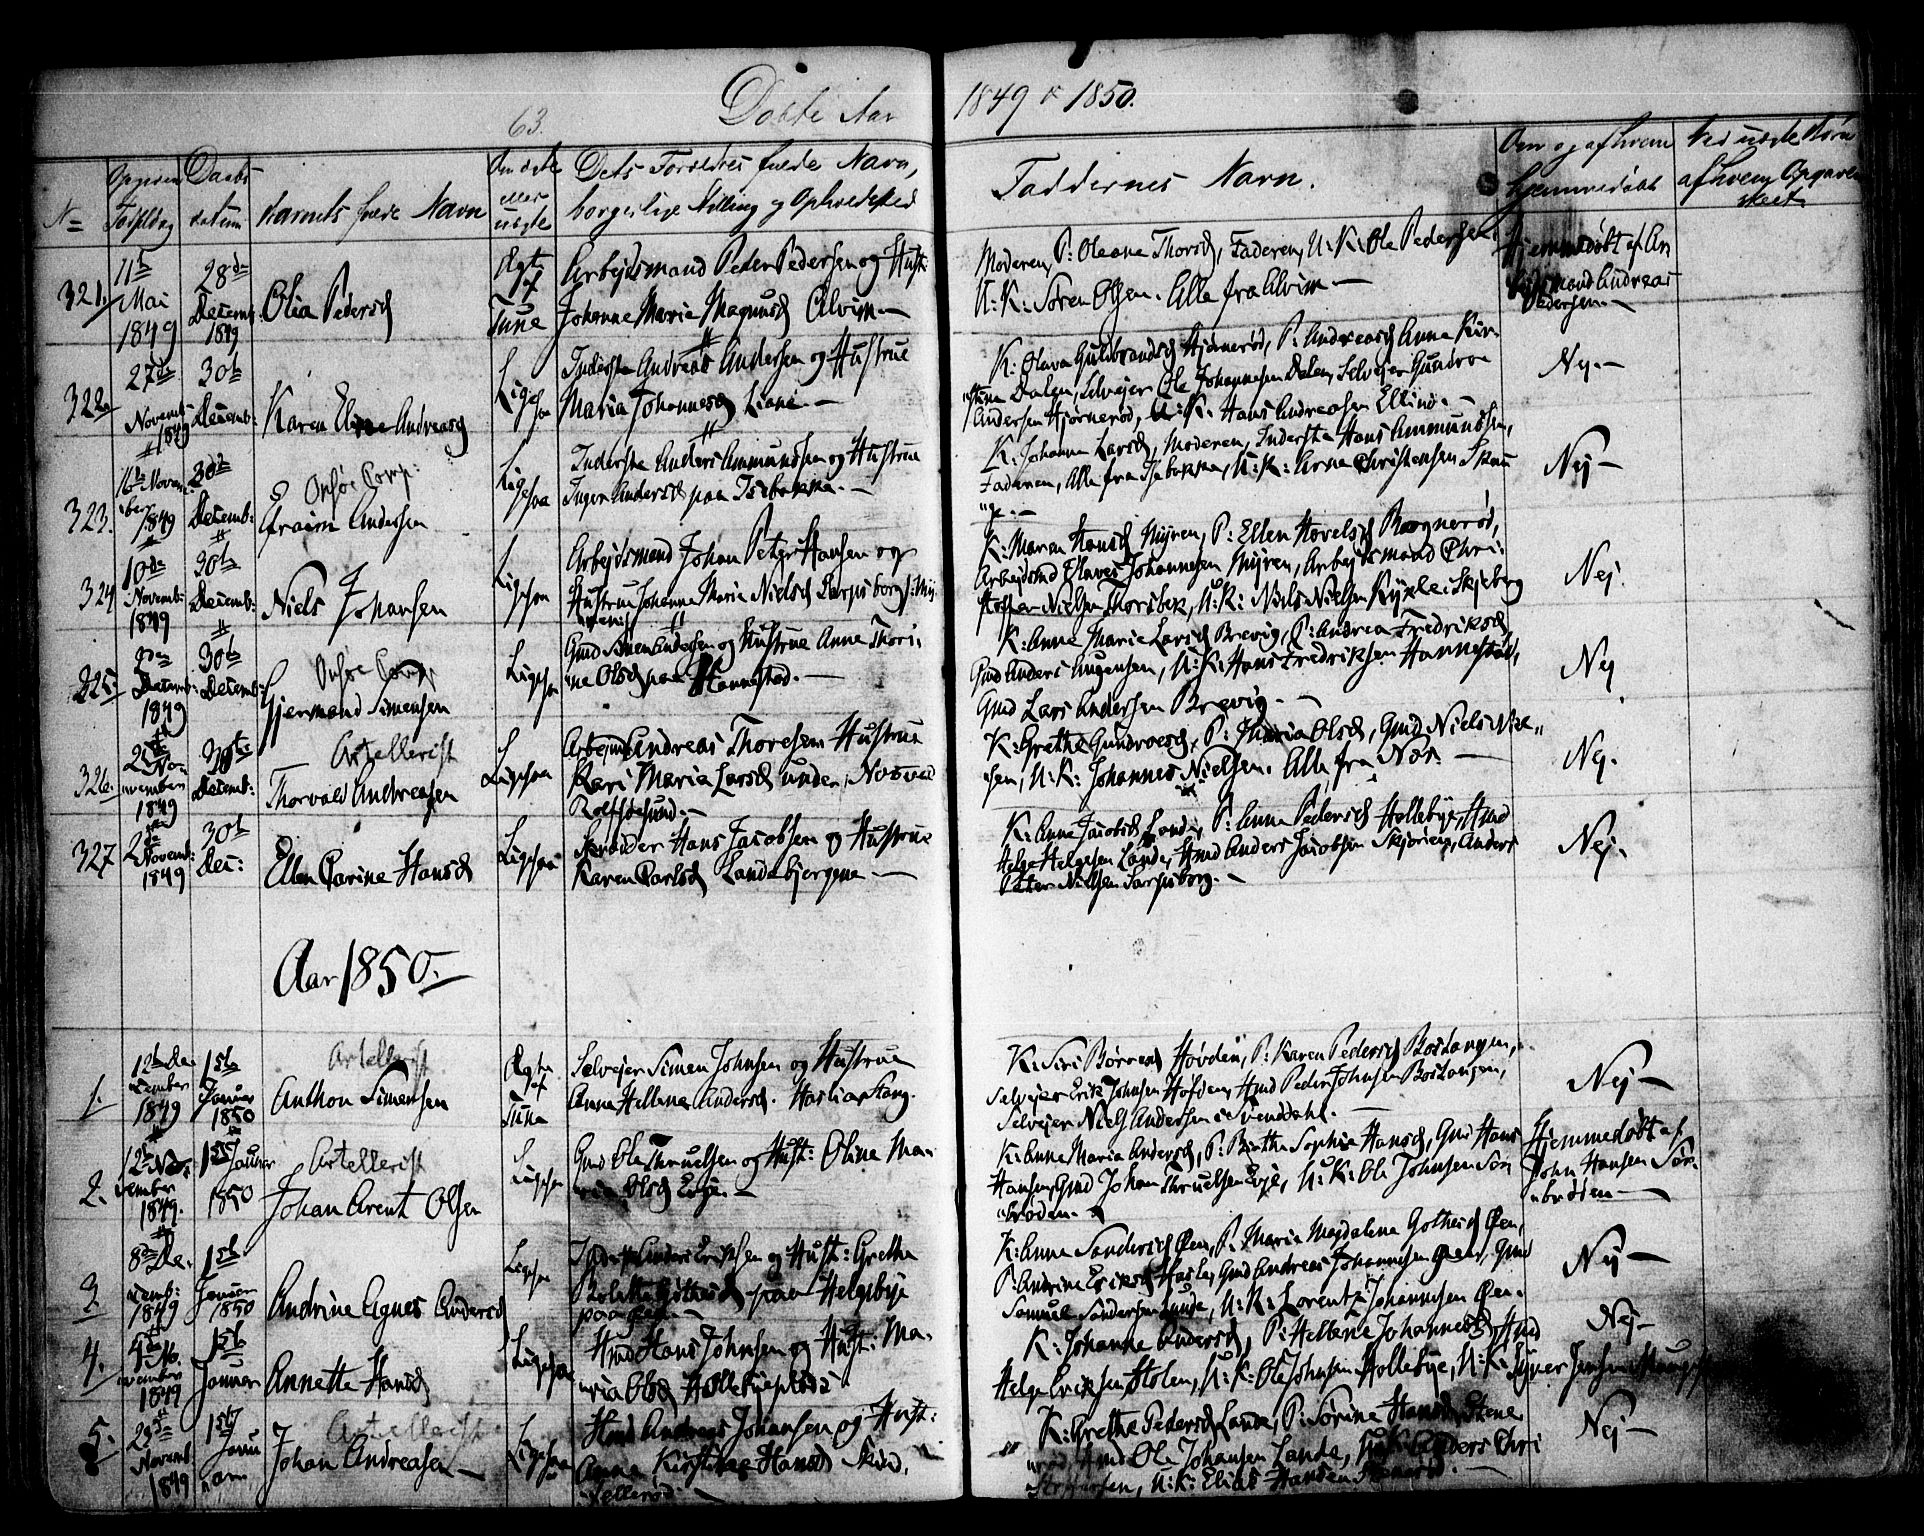 63.
Døbte Aar 1849 & 1850.
N=
Opgiven Fødselsdag
Daabs datum
Barnets fulde Navn
Om ægte eller uægte
Dets Forældres fulde Navn, borgerlige Stilling og Opholdssted
Faddernes Navn.
Om og af hvem hjemmedøbt
Ved uægte Børn af hvem Opgaven skeet.
321.
11te Mai 1849
28de Decemb. 1849
Olia Pedersd
Ægte af Tune
Arbejdsmand Peder Pedersen og Hust:
Johanne Maria Magnusd Alvim.—
Moderen, P: Oleane Thorsd, Faderen, U: K: Ole Pedersen
U: K: Søren Olsen. Alle fra Alvim.—
Hjemmedøbt af Ar
bejdsmand Andreas
Pedersen.—
322.
27de Novemb: 1849
30te Decemb:
Karen Eline Andreasd
Ligesaa
Inderste Andreas Andersen og Hustrue
Maria Johannesd Liane.—
K: Olava Gulbrandsd Hjørnerød, P: Andreasd Anna Kir
stine Dalen, Selvejer Ole Johannesen Dalen, Selvejer Gundro
Andersen Hjørnerød, U: K: Hans Andreasen
Nej.—
323.
16de Novem ber 1849
30te Decemb:
Onsøe Comp:
Efraim Andersen
Ligesaa
Inderste Anders Ammundsen og Hustrue
Inger Andersd paa Isebakke.—
K: Johanne Larsd, Moderen, Inderste Hans Ammundsen,
Faderen, Alle fra Isebakke, U: K: Arne Christensen
Nej—
324
10de Novemb: 1849
30te Decemb:
Niels Johansen
Ligesaa
Arbejdsmand Johan Peter Hansen og
Hustrue Johanne Maria Nielsd Sarpsborg
K: Maren Hansd Myren, P: Ellen Hovelsd
Arbejdsmd Olaves Johannesen Myren, Arbejdsmand Chri
stoffer Nielsen Thorsbek, U: K: Niels Nielsen Skjeberg
Nej.
325
Decemb: 1849
30te Decemb:
Onsøe Comp:
Gjermand Simensen
Ligesaa
Gmd Simen Andersen og Hustrue Anne Thori
ne Olsd paa Hannestad.—
K: Anne Marie Larsd Brevig, P: Andrea Fredriksd
Gmd Anders Augensen, U: K: Hans Fredriksen Hannestad,
Gmd Lars Andersen Brevig.—
Nej
326.
25de No vember 1849
30te Decemb:
Artellerist
Thorvald Andreasen
Ligesaa
Arbejsmd Andreas Thoresen Hustrue
Kari Maria Larsd under
Rolfsøesund.—
K: Grethe Gundroesd, P: Maria Olsd, Gmd Niels Niel
sen, U: K: Johannes Nielsen. Alle fra Nor.—
Nej.
327
2de Novemb: 1849
30te Dec:
Ellen Carine Hansd
Ligesaa
Skræder Hans Jacobsen og Hustrue
Karen Carlsd Landebjergene.—
K: Anne Jacobsd Lande, P: Anna Pedersd Hollebye, Hmd
Helge Helgesen Lande, Hmd Anders Jacobsen Skjøring, Anders
Peter Nielsen Sarpsborg.—
Nej.
Aar 1850.—
1.
12te De cember 1849
1ste Januar 1850
Artellerist
Anthon Simensen
Ægte af Tune
Selvejer Simen Johnsen og Hustrue
Anna Hellene Andersd.
K: Siri Børresd Hovden, P: Karen Pedersd Bostangen,
Selvejer Erik Johnsen Hofden, Hmd Peder Johnsen Bostangen,
Selvejer Niels Andersen i Svenddahl.—
Nej—
2.
12te 1849.
1ste Januar 1850
Artellerist
Johan Arent Olsen
Ligesaa
Gmd Ole Thruelsen og Hust: Oline Ma
ria Olsd Evje.—
K: Anne Maria Andersd, P: Birthe Sophia Hansd, Gmd Hans
Hansen, Gmd Johan Thruelsen Evje, U: K: Ole Johnsen Sør
brøden.
Hjemmedøbt af
John Hansen Sør
brøden—
3.
8de De cemb: 1849
1ste Januar 1850
Andrine Agnes Andersd
Ligesaa
Anders Eriksen og Hust: Grethe
Bolette Gothesd paa Helgebye
K: Anne Sandersd Øen, P: Maria Magdalene Gothesd Øen,
P: Andrine Eriksd Hasle, Gmd Andreas Johannesen Øen, Gmd
Samuel Sandersen Lande, U: K: Lorents Johannesen Øen.
Nej—
4.
4de No vember 1849
1ste Januar
Annette Hansd
Ligesaa
Hmd Hans Johnsen og Hust: Ma
ria Olsd Hollebyeplads
K: Johanne Andersd, P: Hellene Johannesd, Hmd
Helge Eriksen Stolen, U: K: Ole Johnsen Hollebye, U: K: Syver Jensen
Nej—
5.
29de Novemb. 1849
1ste Janu ar
Artellerist
Johan Andreasen—
Ligesaa
Hmd Andreas Johansen og Hust:
Anne Kirstine Hansd
K: Grethe Pedersd Lande, P: Sørine Hansd
Hmd Ole Johansen Lande, Anders Chri
stophersen, U: K: Elias Hansen
Nej—